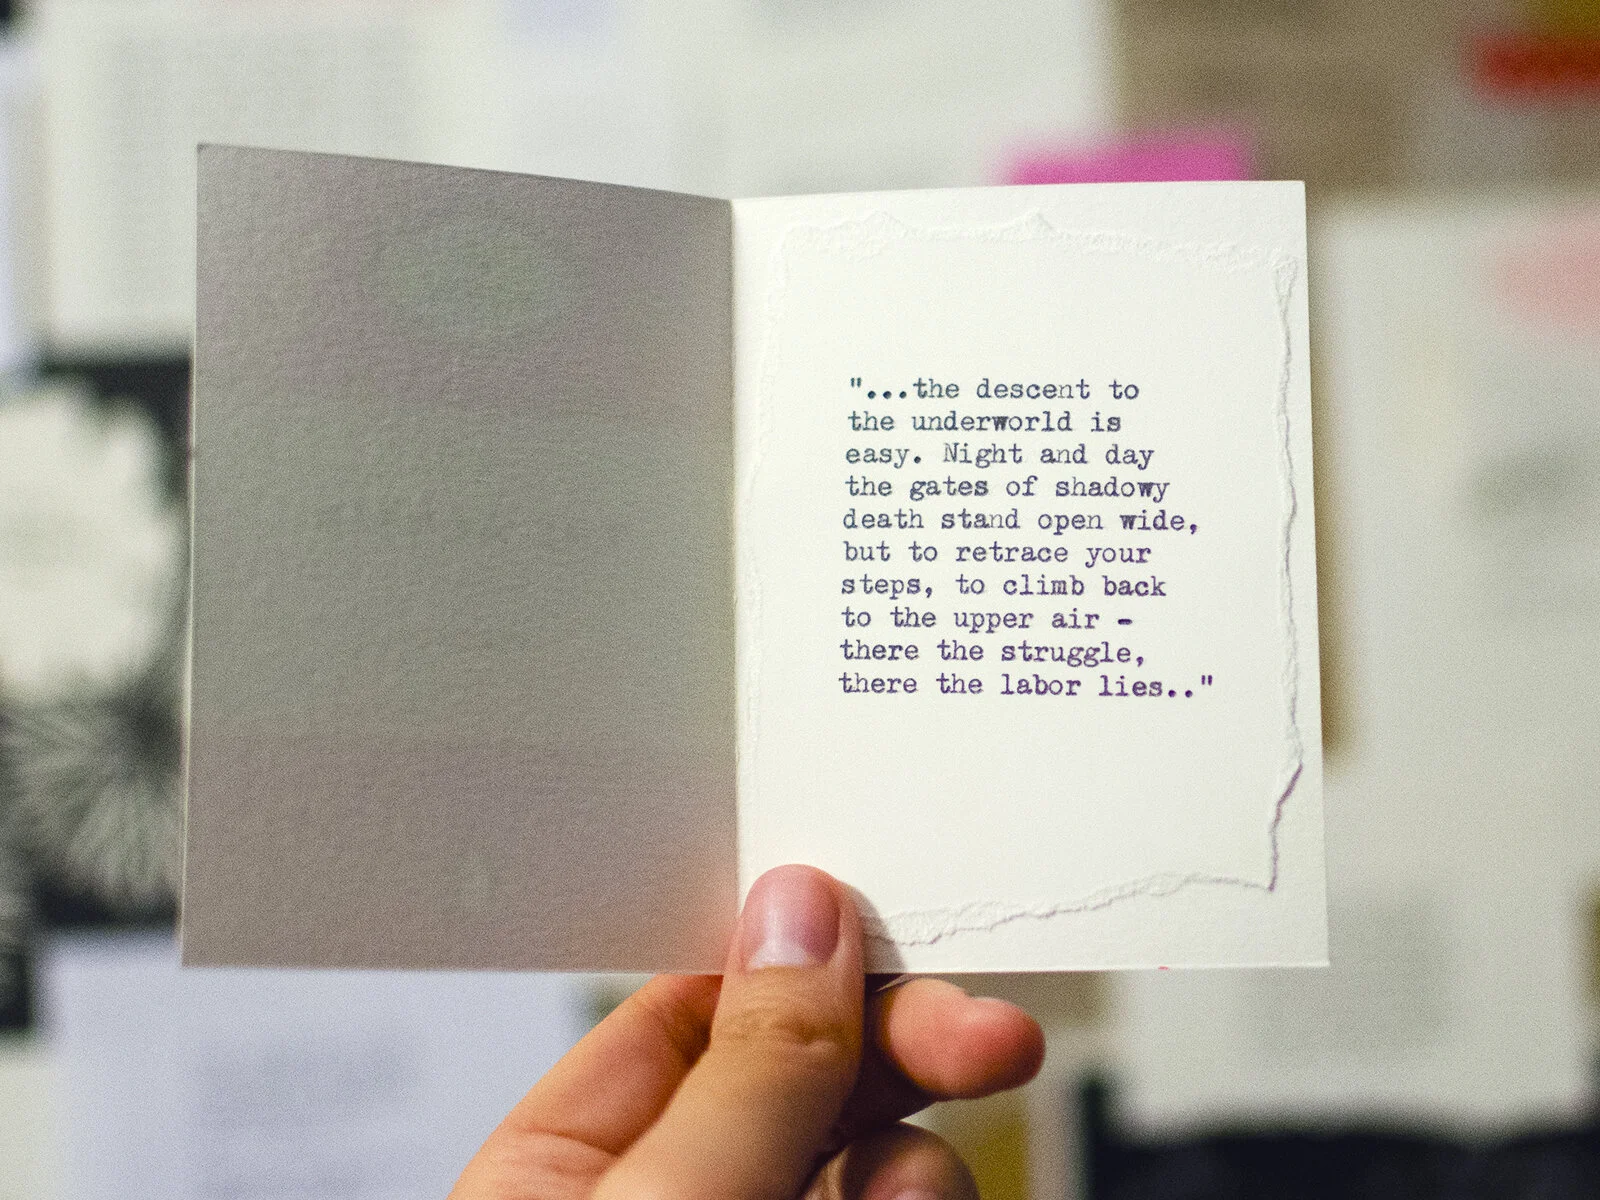 "...the descent to
the underworld is
easy. Night and day
the gates of shadowy
death stand open wide,
but to retrace your
steps, to climb back
to the upper air -
there the struggle,
there the labor lies.."